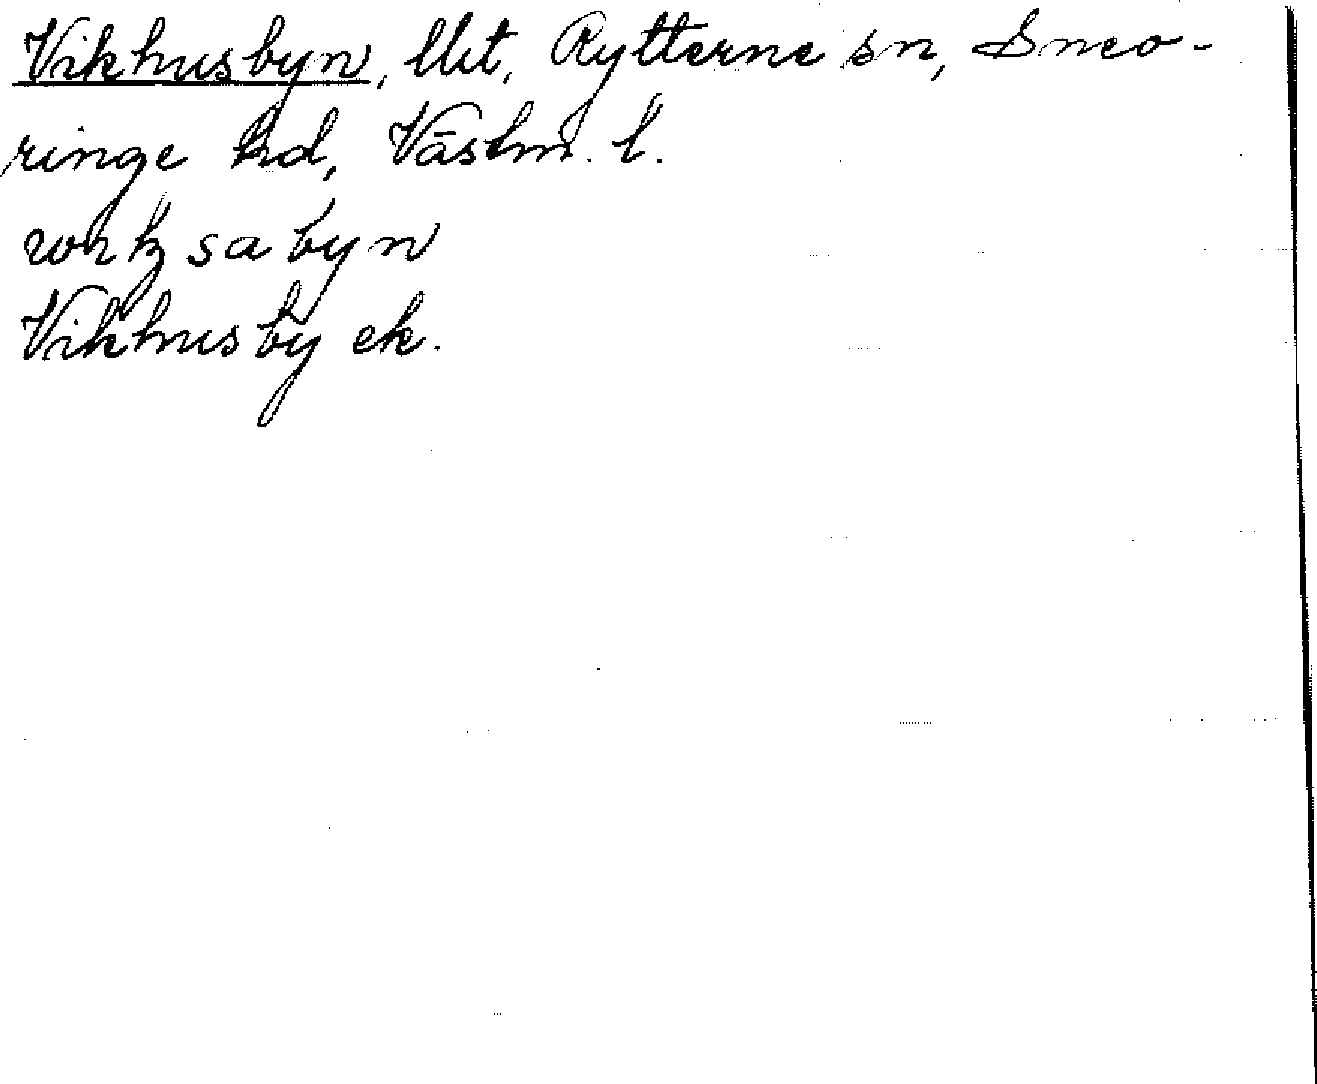 Vikhusbyn, Rytterne sn, Sneo-
ringe hd, Västm. l.
byn
Vikhusby ek.